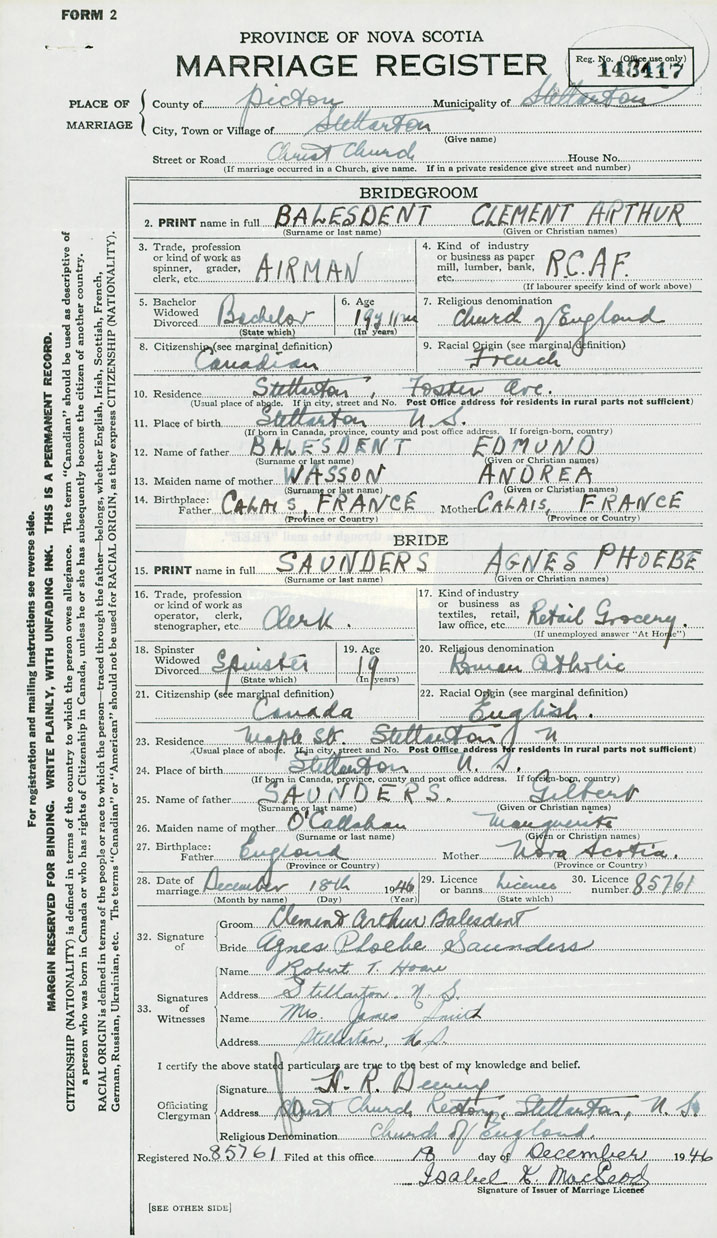 FORM 2
PROVINCE OF NOVA SCOTIA
MARRIAGE REGISTER
Reg. No. (Office use only)
148417
PLACE OF MARRIAGE
County of Picton Municipality of Stellarton
City, Town or Village of Stellarton
(Give name)
Street or Road Christ Church House No.
(If marriage occurred in a Church, give name. If in a private residence give street and number)
BRIDEGROOM
2. PRINT name in full BALESDENT CLEMENT ARTHUR
(Surname or last name) (Given or Christian names)
3. Trade, profession or kind of work as spinner, grader, clerk, etc. AIRMAN
4. Kind of industry or business as paper mill, lumber, bank, etc. R.C.A.F.
(If labourer specify kind of work above)
5. Bachelor Widowed Divorced Bachelor
(State which)
6. Age 19y 11m
(In years)
7. Religious denomination
Church of England
8. Citizenship (see marginal definition)
Canadian
9. Racial Origin (see marginal definition)
French
10. Residence Stellarton, Foster Ave.
(Usual place of abode. If in city, street and No. Post Office address for residents in rural parts not sufficient)
11. Place of birth Stellarton N.S.
(If born in Canada, province, county and post office address. If foreign-born, country)
12. Name of father BALESDENT EDMUND
(Surname or last name) (Given or Christian names)
13. Maiden name of mother WASSON ANDREA
(Surname or last name) (Given or Christian names)
14. Birthplace: Father CALAIS, FRANCE Mother CALAIS, FRANCE
(Province or Country) (Province or Country)
BRIDE
15. PRINT name in full SAUNDERS AGNES PHOEBE
(Surname or last name) (Given or Christian names)
16. Trade, profession or kind of work as operator, clerk, stenographer, etc. Clerk.
17. Kind of industry or business as textiles, retail, law office, etc. Retail Grocery.
(If unemployed answer "At Home")
18. Spinster Widowed Divorced Spinster
(State which)
19. Age 19
(In years)
20. Religious denomination
Roman Catholic
21. Citizenship (see marginal definition)
Canada
22. Racial Origin (see marginal definition)
English.
23. Residence Maple St. Stellarton, N
(Usual place of abode. If in city, street and No. Post Office address for residents in rural parts not sufficient)
24. Place of birth Stellarton N.S.
(If born in Canada, province, county and post office address. If foreign-born, country)
25. Name of father SAUNDERS. Gilbert
(Surname or last name) (Given or Christian names)
26. Maiden name of mother O'Callahan Marguerite
(Surname or last name) (Given or Christian names)
27. Birthplace: Father England Mother Nova Scotia.
(Province or Country) (Province or Country)
28. Date of marriage December 18th 1946
(Month by name) (Day) (Year)
29. Licence or banns Licence
(State which)
30. Licence number 85761
32. Signature of
Groom Clement Arthur Balesdent
Bride Agnes Phoebe Saunders
33. Signatures of Witnesses
Name Robert T. Hoare
Address Stellarton. N.S.
Name Mrs. James Smith
Address Stellarton, N.S.
I certify the above stated particulars are true to the best of my knowledge and belief.
Officiating Clergyman
Signature H. R.
Address Christ Church Rectory, Stellarton, N.S.
Religious Denomination Church of England.
Registered No. 85761 Filed at this office 18 day of December 1946
Isabel K. MacLeod
Signature of Issuer of Marriage Licence
[SEE OTHER SIDE]
For registration and mailing instructions see reverse side.
MARGIN RESERVED FOR BINDING. WRITE PLAINLY, WITH UNFADING INK. THIS IS A PERMANENT RECORD.
CITIZENSHIP (NATIONALITY) is defined in terms of the country to which the person owes allegiance. The term "Canadian" should be used as descriptive of
a person who was born in Canada or who has rights of Citizenship in Canada, unless he or she has subsequently become the citizen of another country.
RACIAL ORIGIN is defined in terms of the people or race to which the person—traced through the father—belongs, whether English, Irish, Scottish, French,
German, Russian, Ukrainian, etc. The terms "Canadian" or "American" should not be used for RACIAL ORIGIN, as they express CITIZENSHIP (NATIONALITY).